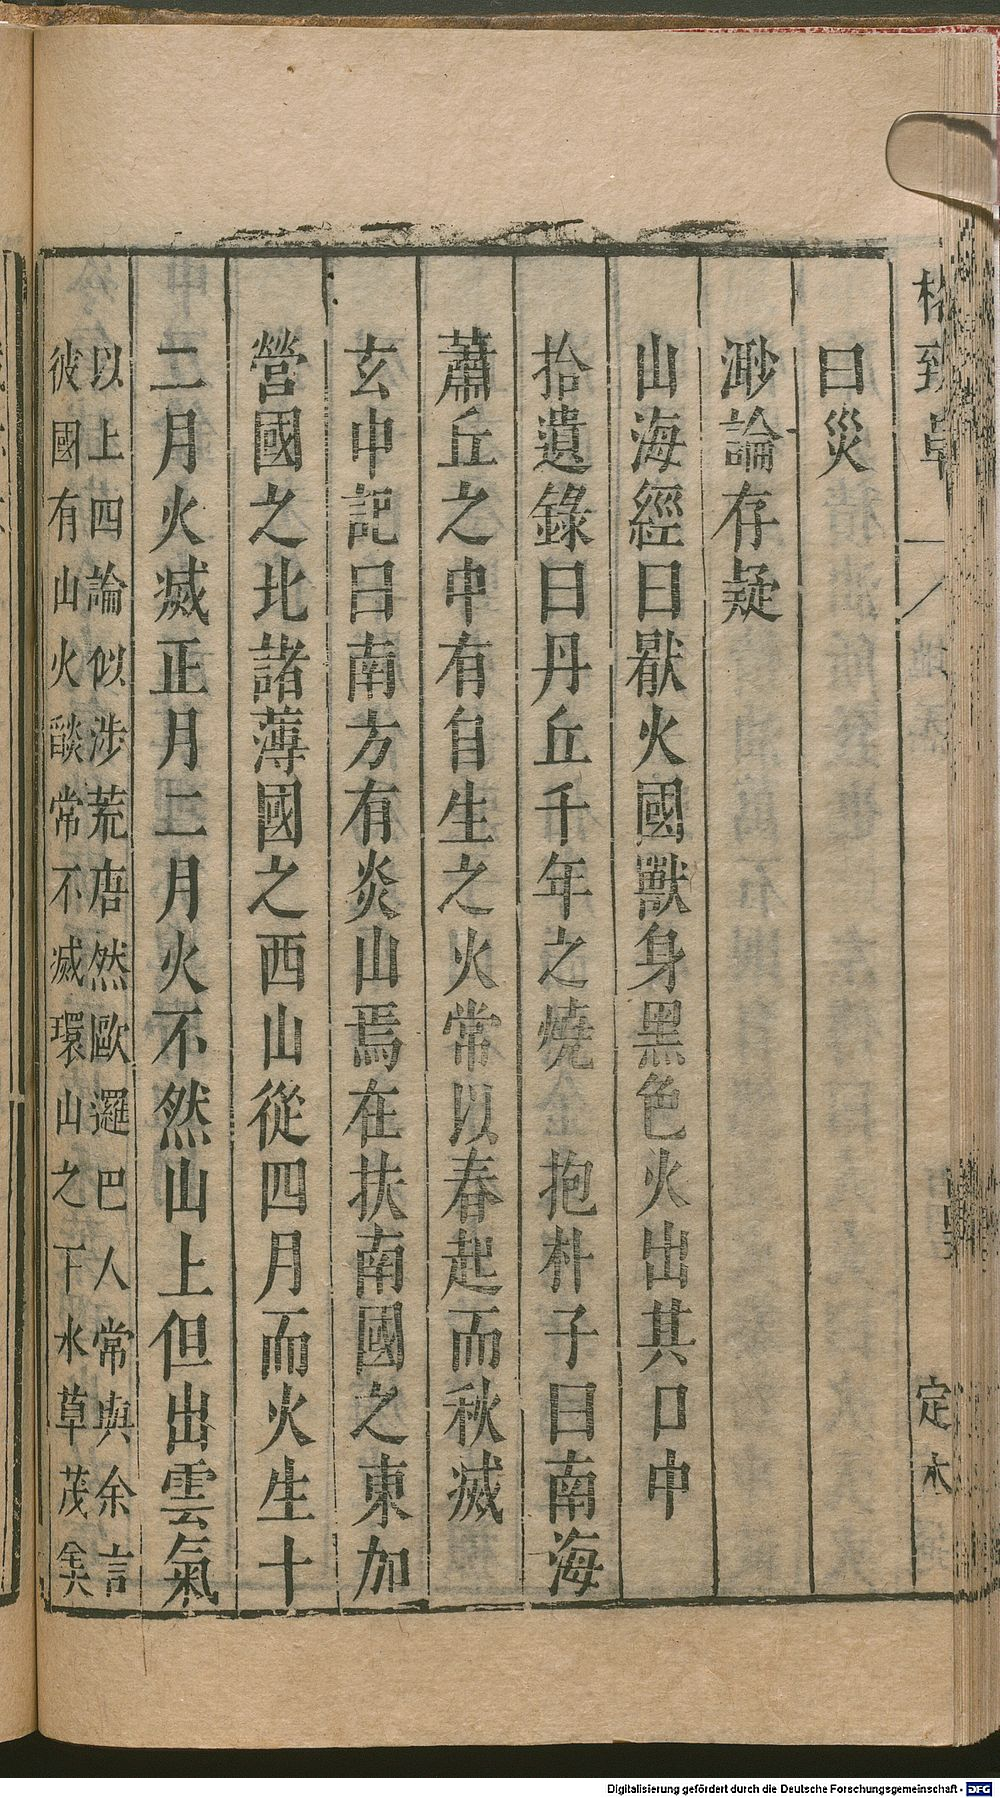 格致草
地
定本
曰災
渺論存疑
山海經曰厭火國獸身黑色火出其口中
拾遺錄曰丹丘千年之燒金抱朴子曰南海
蕭丘之中有自生之火常以春起而秋滅
玄中記曰南方有炎山焉在扶南國之東加
營國之北諸薄國之西山從四月而火生十
二月火滅正月二月火不然山上但出雲氣
以上四論似涉荒唐然歐邏巴人常與余言
彼國有山火燄常不滅環山之下水草茂美
Digitalisierung gefördert durch die Deutsche Forschungsgemeinschaft - DFG